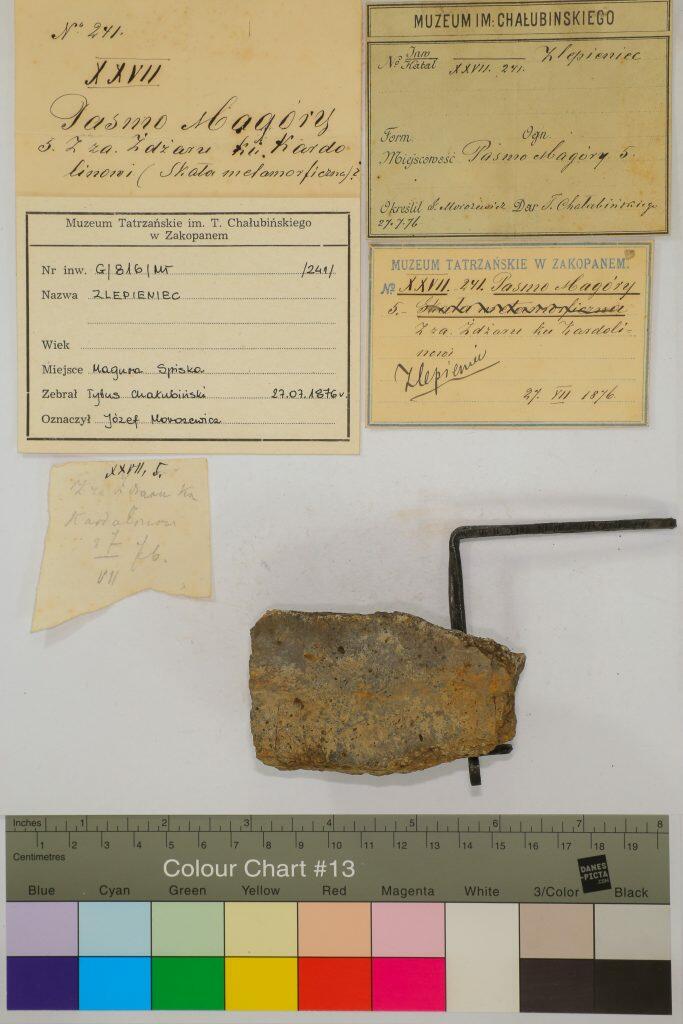 No 241.
XXVII
Pasmo Magóry
5. Z za. Ździaru ku Kardo
linowi (Skała metamorficzna)?
MUZEUM IM: CHAŁUBIŃSKIEGO
No Inw Zlepieniec
Katal XXVII. 241.
Form. Ogn.
Miejscowość Pasmo Magóry 5.
Określił J. Morozewicz Dar T. Chałubińskiego
27.7.76
Muzeum Tatrzańskie im. T. Chałubińskiego
w Zakopanem
Nr inw. G/816/MT /241/
Nazwa ZLEPIENIEC
Wiek
Miejsce Magura Spiska
Zebrał Tytus Chałubiński 27.07.1876r.
Oznaczył Józef Morozewicz
MUZEUM TATRZAŃSKIE W ZAKOPANEM.
No XXVII. 241. Pasmo Magóry
5. - Skała metamorficzna
Z za. Ździaru ku Kardoli-
nowi
Zlepieniec
27. VII 1876
XXVII, 5.
Z za Ździaru ku
27 76.
VII
Inches 1 2 3 4 5 6 7 8
1 2 3 4 5 6 7 8 9 10 11 12 13 14 15 16 17 18 19
Centimetres
Colour Chart #13
DANES
-PICTA
.COM
Blue Cyan Green Yellow Red Magenta White 3/Color Black